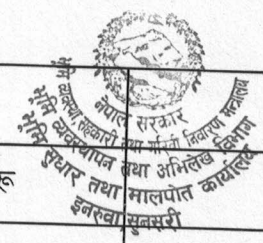 नेपाल सरकार
भूमि व्यवस्था सहकारी तथा गरिबी निवारण मन्त्रालय
भूमि व्यवस्थापन तथा अभिलेख विभाग
भूमि सुधार तथा मालपोत कार्यालय
इनरुवा सुनसरी